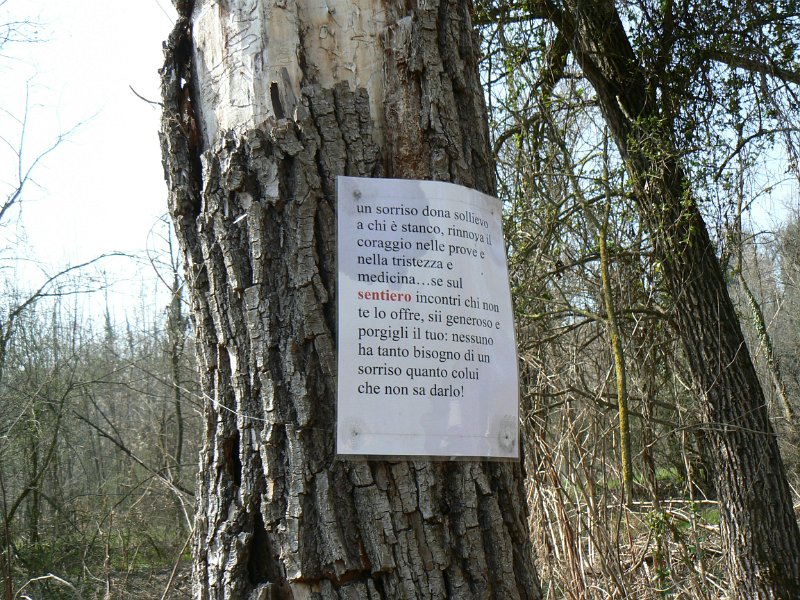 un sorriso dona sollievo
a chi è stanco, rinnova il
coraggio nelle prove e
nella tristezza e
medicina...se sul
sentiero incontri chi non
te lo offre, sii generoso e
porgigli il tuo: nessuno
ha tanto bisogno di un
sorriso quanto colui
che non sa darlo!